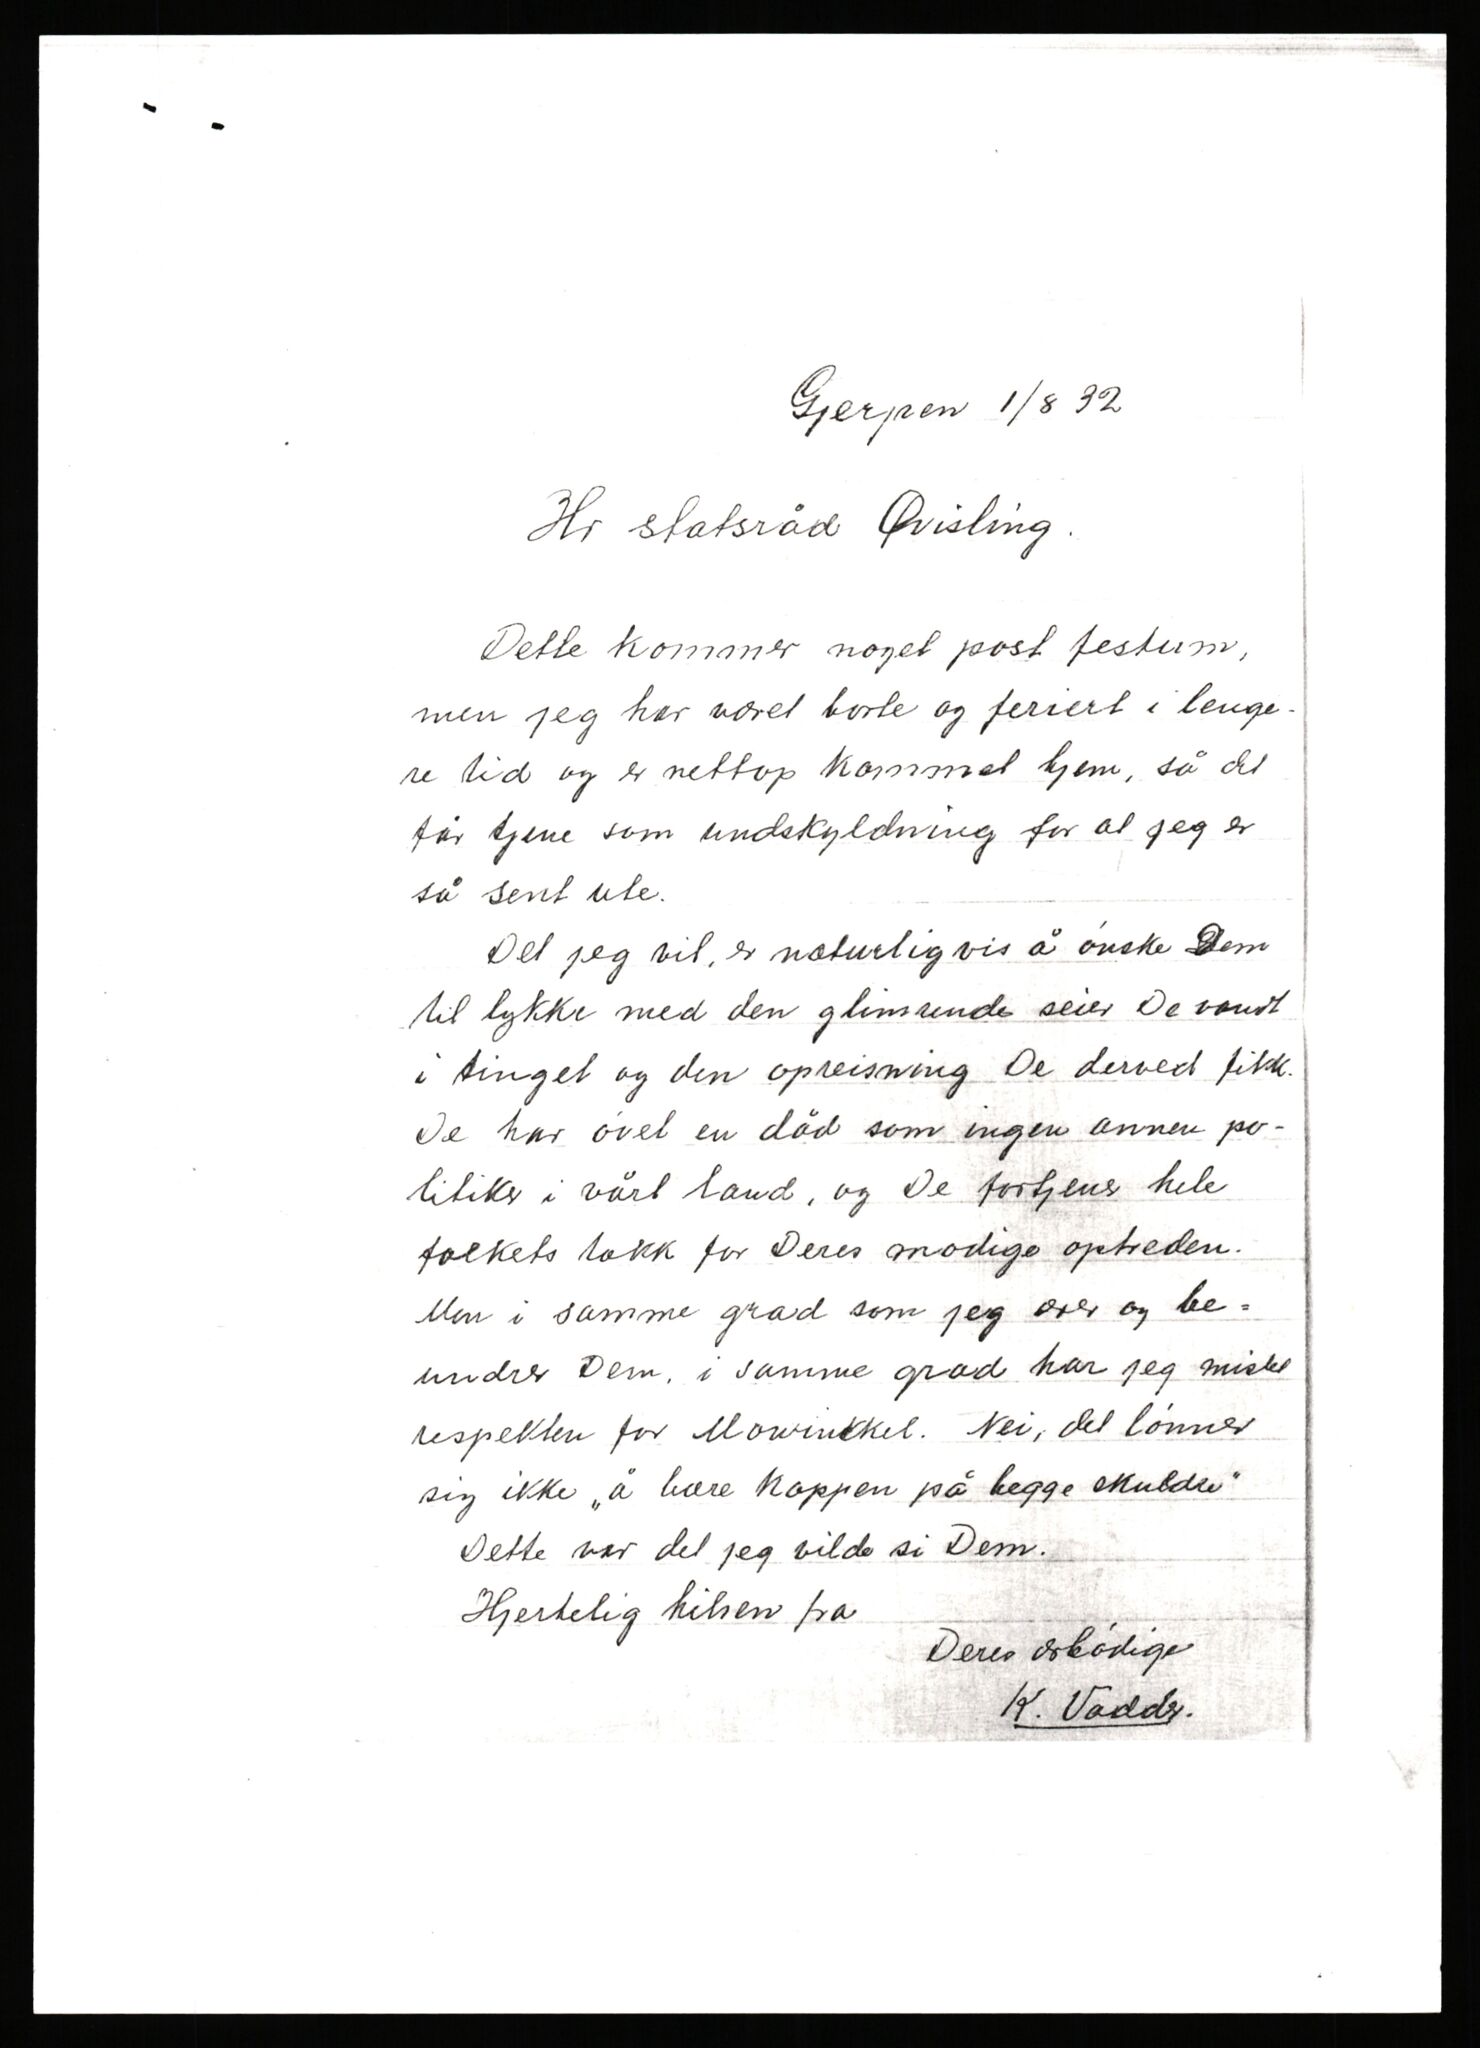 Gjerpen 1/8 32
Hr statsråd Qvisling.
Dette kommer noget post festum,
men jeg har været borte og feriert i lenge-
re tid og er nettop kommet hjem, så det
får tjene som undskyldning for at jeg er
så sent ute.
Det jeg vil, er naturligvis å ønske Dem
til lykke med den glimrende seier De vandt
i tinget og den opreisning De derved fikk.
De har øvet en dåd som ingen annen po-
litiker i vårt land, og De fortjener hele
folkets takk for Deres modige optreden.
Men i samme grad som jeg ærer og be-
undrer Dem, i samme grad har jeg mistet
respekten for Mowinckel. Nei, det lønner
sig ikke „å bære kappen på begge skuldre"
Dette var det jeg vilde si Dem.
Hjertelig hilsen fra
Deres ærbødige
K. Vadder.